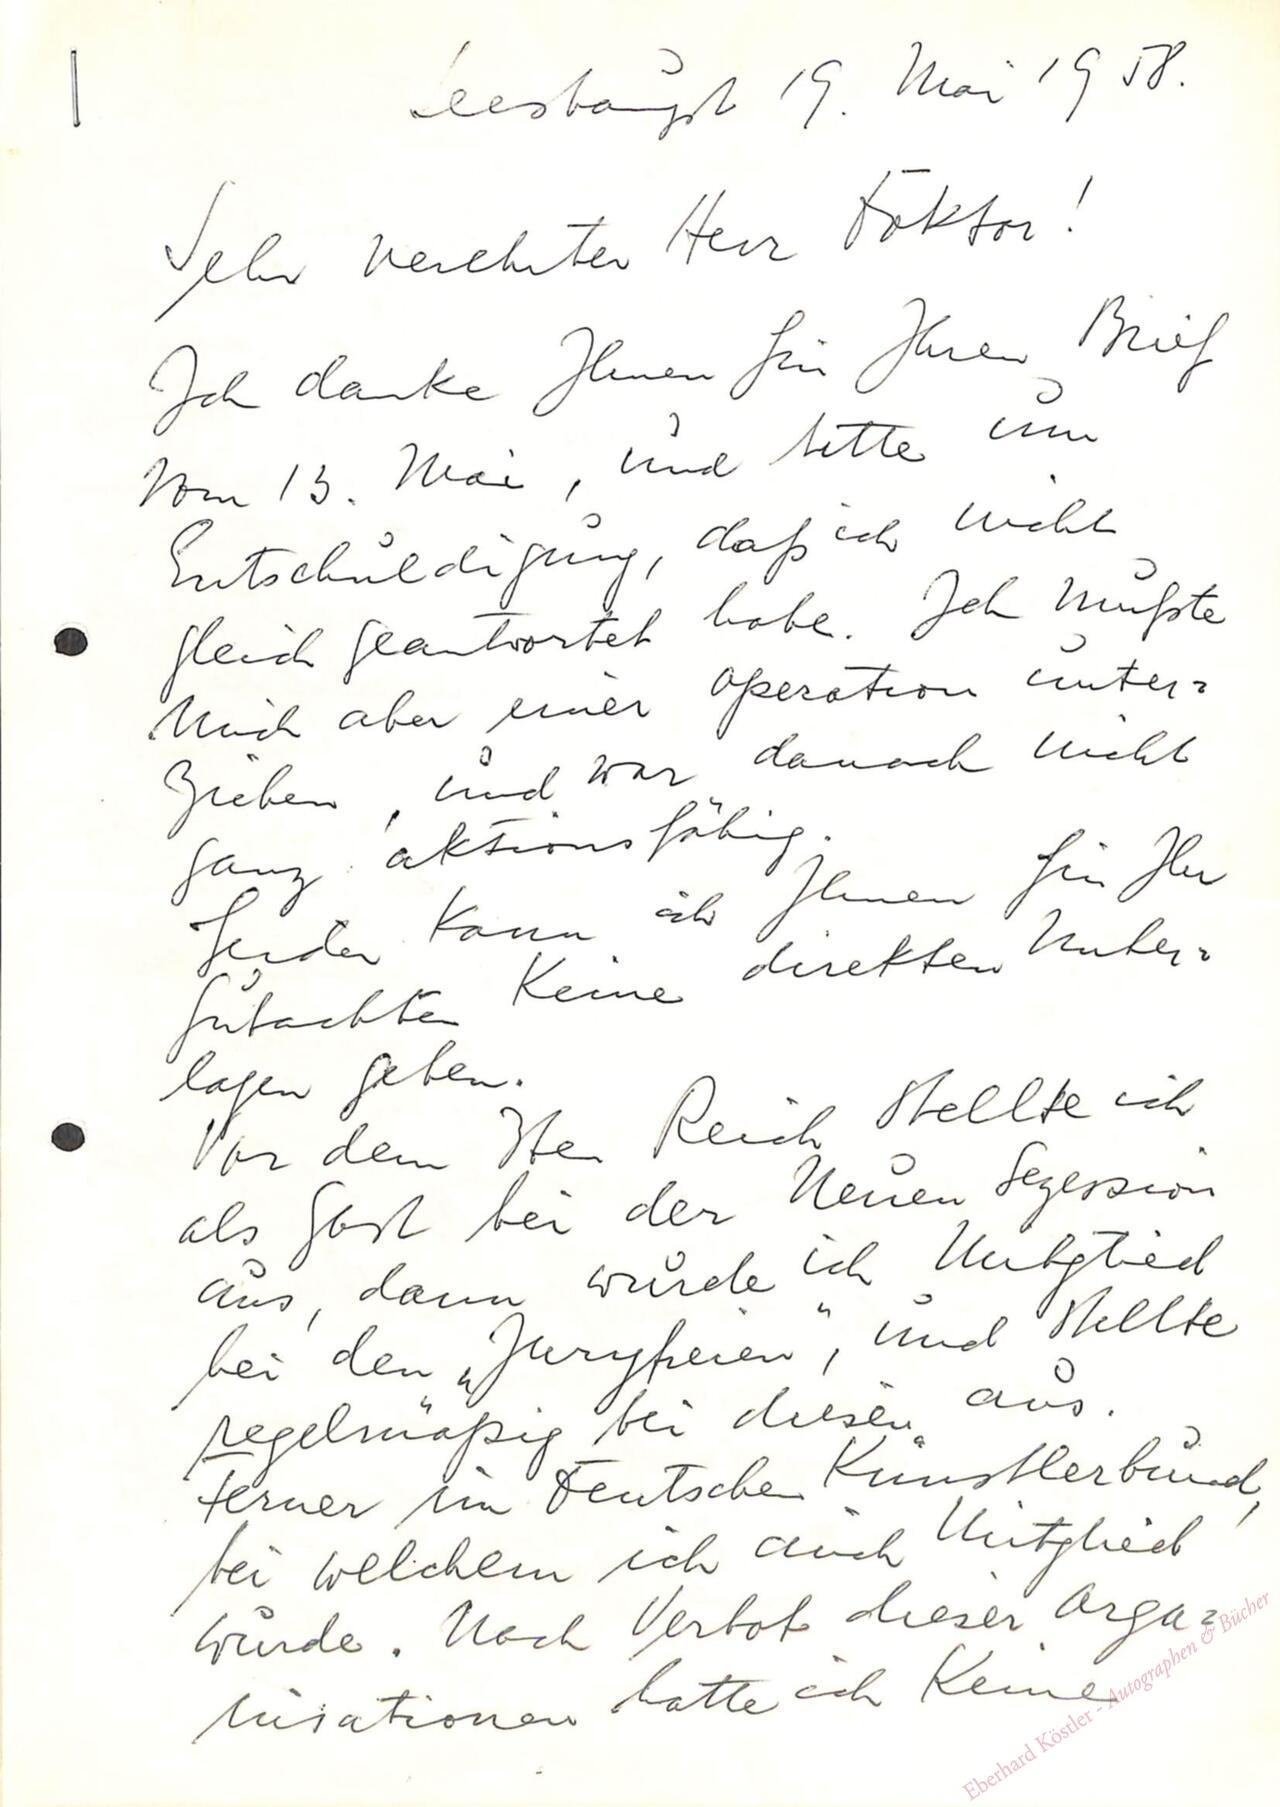 Seeshaupt 19. Mai 1958.
Sehr verehrter Herr Doktor!
Ich danke Ihnen für Ihren Brief
vom 13. Mai, und bitte um
Entschuldigung, daß ich nicht
gleich geantwortet habe. Ich mußte
mich aber einer Operation unter=
ziehen, und war danach nicht
ganz aktionsfähig.
Leider kann ich Ihnen für Ihr
Gutachten keine direkten Unter=
lagen geben.
Vor dem 3ten Reich stellte ich
als Gast bei der Neuen Sezession
aus, dann wurde ich Mitglied
bei den „Juryfreien“, und stellte
regelmäßig bei diesen aus.
Ferner im Deutschen Künstlerbund,
bei welchem ich auch Mitglied
wurde. Nach Verbot dieser Orga=
nisationen hatte ich keine
Eberhard Köstler - Autographen & Bücher